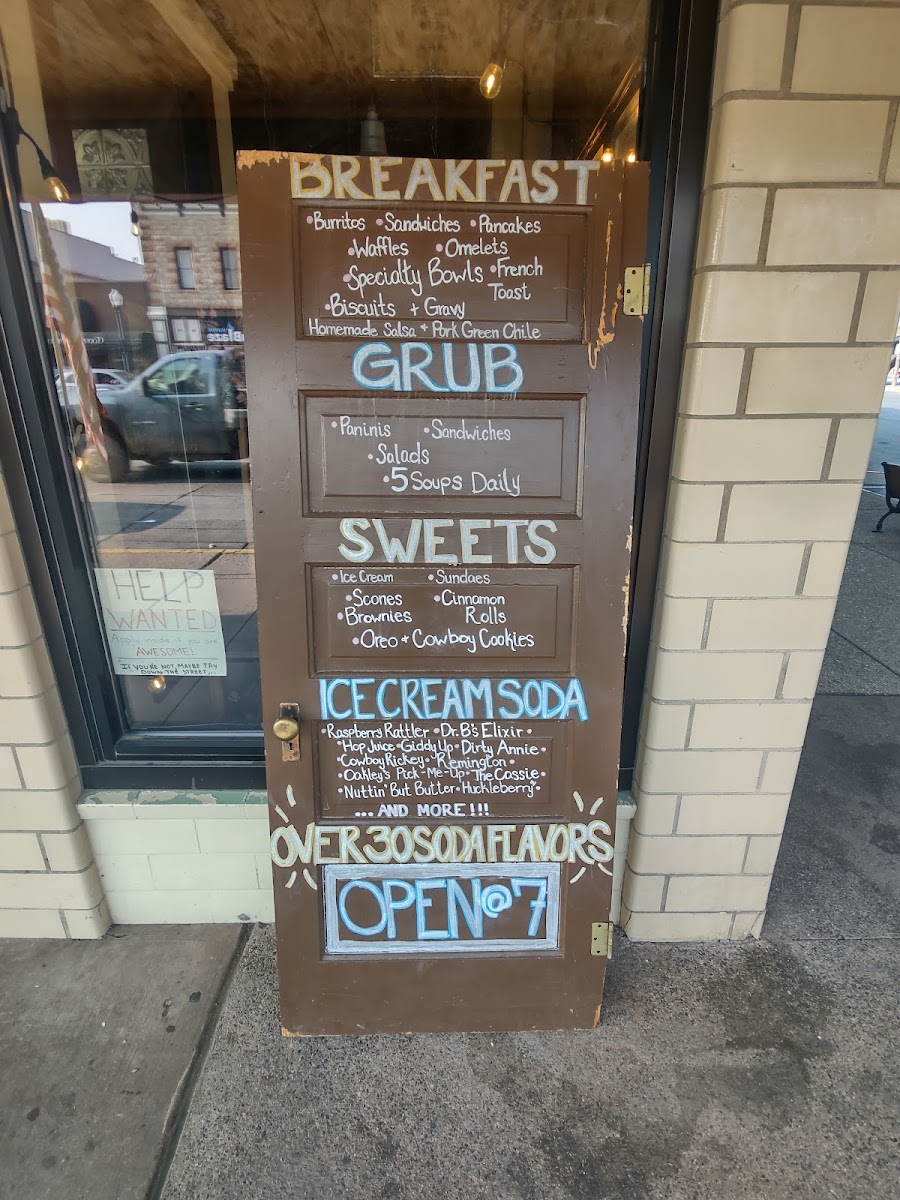 BREAKFAST
•Burritos •Sandwiches •Pancakes
•Waffles •Omelets
•Specialty Bowls •French Toast
•Biscuits + Gravy
Homemade Salsa + Pork Green Chile
GRUB
•Paninis •Sandwiches
•Salads
•5 Soups Daily
SWEETS
•Ice Cream •Sundaes
•Scones •Cinnamon Rolls
•Brownies
•Oreo + Cowboy Cookies
ICE CREAM SODA
•Raspberry Rattler •Dr. B's Elixir •
•Hop Juice •Giddy Up •Dirty Annie •
•Cowboy Rickey •Remington •
•Oakley's Pick-Me-Up •The Cassie •
•Nuttin' But Butter •Huckleberry•
... AND MORE!!!
OVER 30 SODA FLAVORS
OPEN@7
HELP
WANTED
Apply inside if you are
AWESOME!
IF YOU'RE NOT, MAYBE TRY
DOWN THE STREET...